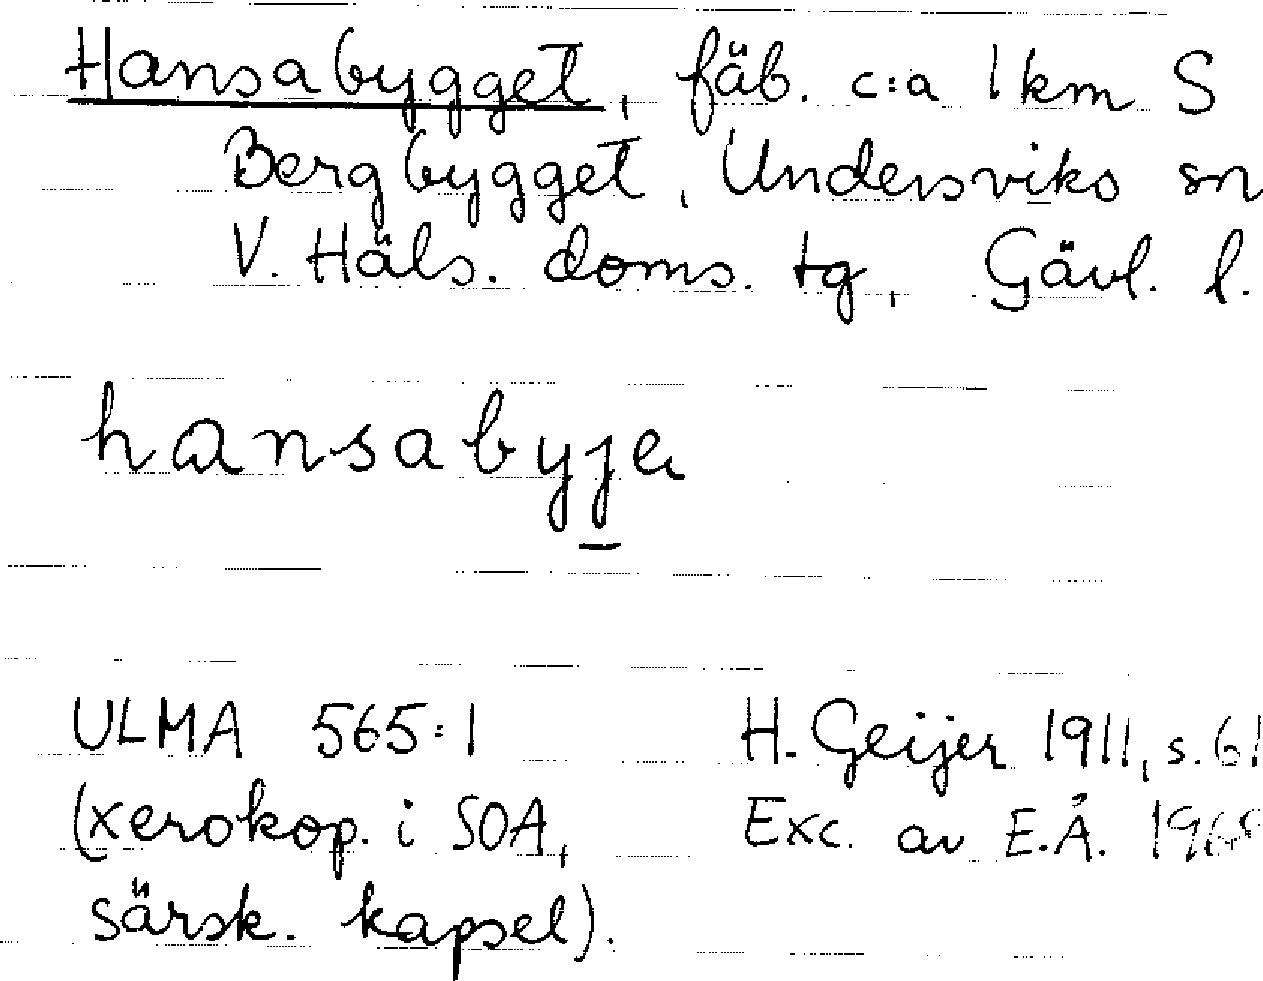 Hansabygget, fäb. c:a 1 km S
Bergbygget, Undersviks sn
V. Häls. doms. tg, Gävl. l.
hansabyje
ULMA 565:1
(xerokop. i SOA,
särsk. kapsel).
H. Geijer 1911, s. 61
Exc. av E.Å.